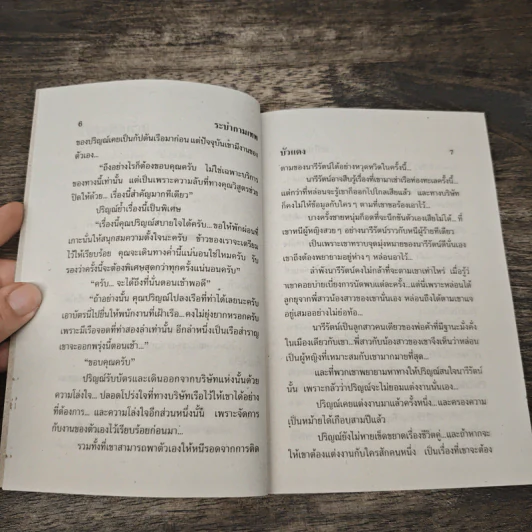 6
ระบำกามเทพ
ของปริญณ์เคยเป็นกัปตันเรือมาก่อน แต่ปัจจุบันเข้ามีงานของ
ตัวเอง...
“ถึงอย่างไรก็ต้องขอบคุณครับ ไม่ใช่เฉพาะบริการ
ของทางนี้เท่านั้น แต่เป็นเพราะความลับที่ทางคุณวิสูตรช่วย
ปิดให้ด้วย... เรื่องนี้สำคัญมากทีเดียว”
ปริญณ์ย้ำเรื่องนี้เป็นพิเศษ
“เรื่องนี้คุณปริญณ์สบายใจได้ครับ...ขอให้พักผ่อนที่
เกาะนั่นให้สนุกสมความตั้งใจนะครับ ข้าวของเราจะเตรียม
ไว้ให้เรียบร้อย คุณจะเดินทางค่ำนี้แน่นอนใช่ไหมครับ รับ
รองว่าครั้งนี้ต้องพิเศษสุดกว่าทุกครั้งแน่นอนครับ”
“ครับ.. จะได้ถึงที่นั่นตอนเช้าพอดี”
“ถ้าอย่างนั้น คุณปริญณ์ไปลงเรือที่ท่าได้เลยนะครับ
เอาบัตรนี้ไปยื่นให้พนักงานที่เฝ้าเรือ... คงไม่ยุ่งยากหรอกครับ
เพราะมีเรือจอดที่ท่าสองลำเท่านั้น อีกลำหนึ่งเป็นเรือสำราญ
เขาจะออกพรุ่งนี้ตอนเช้า...”
“ขอบคุณครับ”
ปริญณ์รับบัตรและเดินออกจากบริษัทแห่งนั้นด้วย
ความโล่งใจ... ปลอดโปร่งใจที่ทางบริษัทเรือไว้ให้เขาได้อย่าง
ที่ต้องการ... และความโล่งใจอีกส่วนหนึ่งนี้ เพราะจัดการ
กับงานของตัวเองไว้เรียบร้อยก่อนมา...
รวมทั้งที่เขาสามารถพาตัวเองให้หนีรอดจากการติด
บัวแดง
7
ตามของนารีรัตน์ได้อย่างหวุดหวิดในครั้งนี้...
นารีรัตน์อาจสืบรู้เรื่องที่เขามาเช่าเรือท่องทะเลครั้งนี้...
แต่กว่าที่หล่อนจะรู้เขาก็ออกไปไกลเสียแล้ว และทางบริษัท
ก็คงไม่ให้ข้อมูลกับใคร ๆ ตามที่เขาขอร้องเอาไว้...
บางครั้งชายหนุ่มก็อดที่จะนึกขันตัวเองเสียไม่ได้.. ที่
เขาหนีผู้หญิงสวย ๆ อย่างนารีรัตน์ราวกับหนีผู้ร้ายทีเดียว...
เป็นเพราะเขาทราบจุดมุ่งหมายของนารีรัตน์ดีนั่นเอง
เขาถึงต้องพยายามอยู่ห่าง ๆ หล่อนเอาไว้..
ลำพังนารีรัตน์คงไม่กล้าที่จะตามเขาเท่าไหร่ เมื่อรู้ว่า
เขาเคยบ่ายเบี่ยงการนัดพบแต่ละครั้ง..แต่นี่เพราะหล่อนได้
ลูกยุจากพี่สาวน้องสาวของเขานั่นเอง หล่อนยังได้ตามเขาแจ
อยู่เสมออย่างไม่ย่อท้อ..
นารีรัตน์เป็นลูกสาวคนเดียวของพ่อค้าที่มีฐานะมั่งคั่ง
ในเมืองเดียวกับเขา...พี่สาวกับน้องสาวของเขาจึงเห็นว่าหล่อน
เป็นผู้หญิงที่เหมาะสมกับเขามากมายที่สุด...
และที่พวกเขาพยายามหาทางให้ปริญณ์สนใจนารีรัตน์
นั้น เพราะกลัวว่าปริญณ์จะไม่ยอมแต่งงานนั่นเอง...
ปริญณ์เคยแต่งงานมาแล้วครั้งหนึ่ง...และครองความ
เป็นหม้ายได้เกือบสามปีแล้ว
ปริญณ์ยังไม่หายเข็ดขยาดเรื่องชีวิตคู่...และถ้าหากจะ
ให้เขาต้องแต่งงานกับใครสักคนหนึ่ง เป็นเรื่องที่เขาจะต้อง